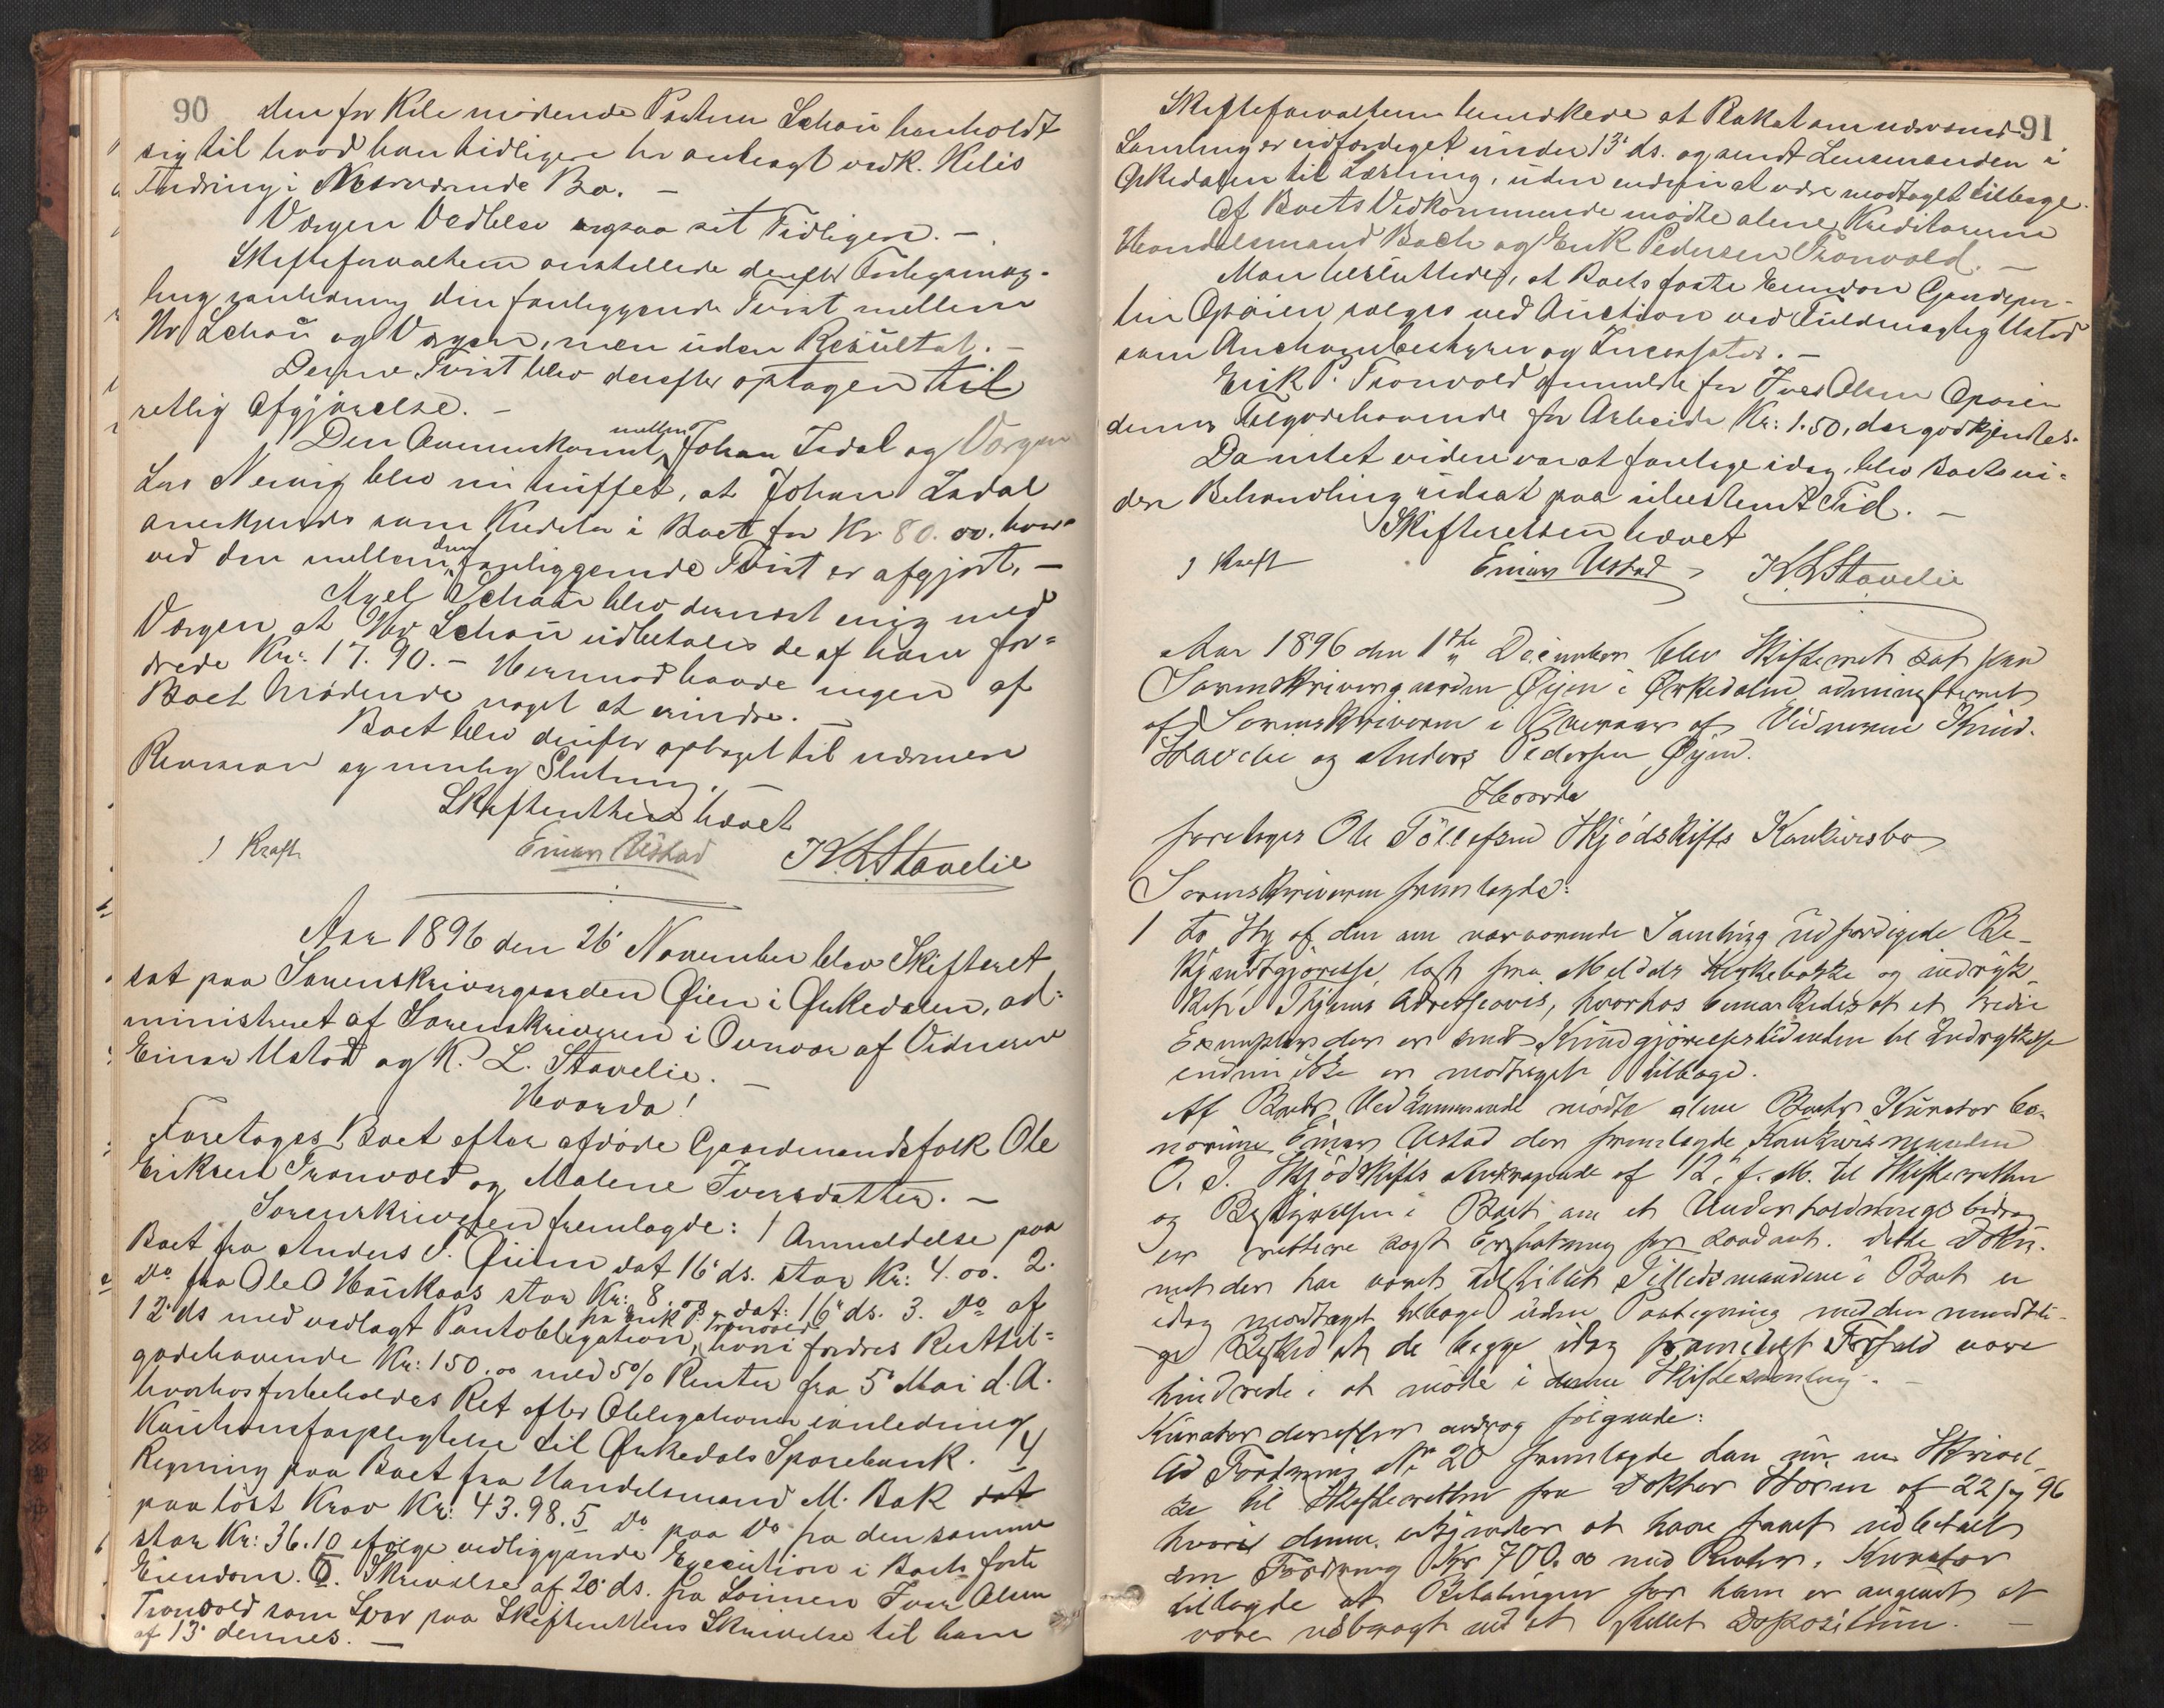 90
den for Kile mødende Partner Schou henholdt
sig til hvad han tidligere har anbragt vedk. Kiles
Fordring i Nærværende Bo. –
Værgen Vedblev ogsaa sit Tidligere. –
Skifteforvalteren anstillede derefter Forligsmæg-
ling i anledning den foreliggende Tvist mellem
Hr Schou og Værgen, men uden Resultat. –
Denne Tvist blev derefter optagen til
retlig Afgjørelse. –
Den Overenskomst mellem Johan Indal og Værgen
Lars blev nu truffet, at Johan Indal
anerkjendes som Kreditor i Boet for Kr. 80.00. hvor-
ved den mellem dem foreliggende Tvist er afgjort. –
Axel Schou blev dernæst enig med
Værgen at Hr Schou udbetales de af ham for-
drede Kr: 17.90. – Hermed havde ingen af
Boet Mødende noget at erindre. –
Boet blev derefter optaget til nærmere
Revision og mulig Slutning. –
Skifteretten hævet
J Kraft Einar Ustad K. L. Stavelie
Aar 1896 den 26' November blev Skifteret
sat paa Sorenskrivergaarden Øien i Ørkedalen, ad-
ministreret af Sorenskriveren i Overvær af Vidnerne
Einar Ustad og K. L. Stavelie. –
Hvorda!
Foretoges Boet efter afdøde Gaardmandsfolk Ole
Eriksen Tronvold og Malene Iversdatter. –
Sorenskriveren fremlagde: 1 Anmeldelse paa
Boet fra Anders P. Øien dat 16' ds. stor Kr: 4.00. 2.
Do fra Ole O Haukaas stor Kr: 8.00 dat: 16' ds. 3. Do af
12' ds med vedlagt Pantobligation, fra Erik P. Tronvold hvori fordres Resttil-
godehavende Kr: 150.00 med 5% Renter fra 5' Mai d. A.
hvorhos forbeholdes Ret efter Obligationen i anledning
Kautionsforpligtelse til Ørkedals Sparebank. 4
Regning paa Boet fra Handelsmand M. Bak dat
paa løst Krav Kr: 43.98. 5 Do paa Do fra den samme
stor Kr: 36.10 ifølge vedliggende Execution i Boets faste
Eiendom. 6. Skrivelse af 20' ds. fra Iver Olsen
Tronvold som Svar paa Skifterettens Skrivelse til ham
af 13' dennes. –
91
Skifteforvalteren bemærkede at Plakat om nærværende
Samling er udfærdiget under 13' ds. og sendt Lensmanden i
Ørkedalen til Læsning, uden endnu at være modtaget tilbage.
Af Boets Vedkommende mødte alene Kreditorerne
Handelsmand Bach og Erik Pedersen Tronvold. –
Man besluttede, at Boets faste Eiendom
Opøien sælges ved Auction ved Fuldmægtig Ustad
som Auctionsbestyrer og Incassator. –
Erik P. Tronvold anmeldte for Iver Olsen Opøien
dennes Tilgodehavende for Arbeide Kr: 1.50, der godkjendtes.
Da intet videre var at foretage idag, blev Boets vi-
dere Behandling udsat paa ubestemt Tid. –
Skifteretten hævet
J Kraft Einar Ustad K. L. Stavelie
Aar 1896 den 1ste December blev Skifteret sat paa
Sorenskrivergaarden Øyen i Ørkedalen, administreret
af Sorenskriveren i Overvær af Vidnerne Knud
Stavelie og Anders Pedersen Øyen.
Hvorda
foretoges Ole Tollefsen Skjødskifts Konkursbo
Sorenskriveren fremlagde:
1 to Ex af den om nærværende Samling udfærdigede Be-
kjendtgjørelse, læst fra Meldals Kirkebakke og indryk-
ket i Thjems Adresseavis, hvorhos bemærkedes at et tredie
Exemplar der er sendt Kundgjørelsestidenden til Indrykkelse
endnu ikke er modtaget tilbage.
Af Boets Vedkommende mødte alene Boets Kurator bo-
norum Einar Ustad der fremlagde Konkursmanden
O. T. Skjødskifts Andragende af 12' f. M. til Skifteretten
og Bestyrelsen i Boet om et Underholdningsbidrag
er rettere sagt Erstatning for saadant. Dette Doku-
ment der har været tilstillet Tillidsmændene i Boet er
idag modtaget tilbage uden Paategning med den mundtli-
ge Besked at de begge idag formedelst Forfald vare
hindrede i at møde i denne Skiftesamling. –
Kurator derefter androg følgende:
Ad Fordring No 20 fremlagde han nu en Skrivel-
se til Skifteretten fra Doktor af 22/7 96
hvori denne erkjender at have faaet udbetalt
sin Fordring Kr 700.00 med Renter. Kurator
tillagde at Betalingen for ham er angivet at
være udbragt ud et stillet Depositum. –